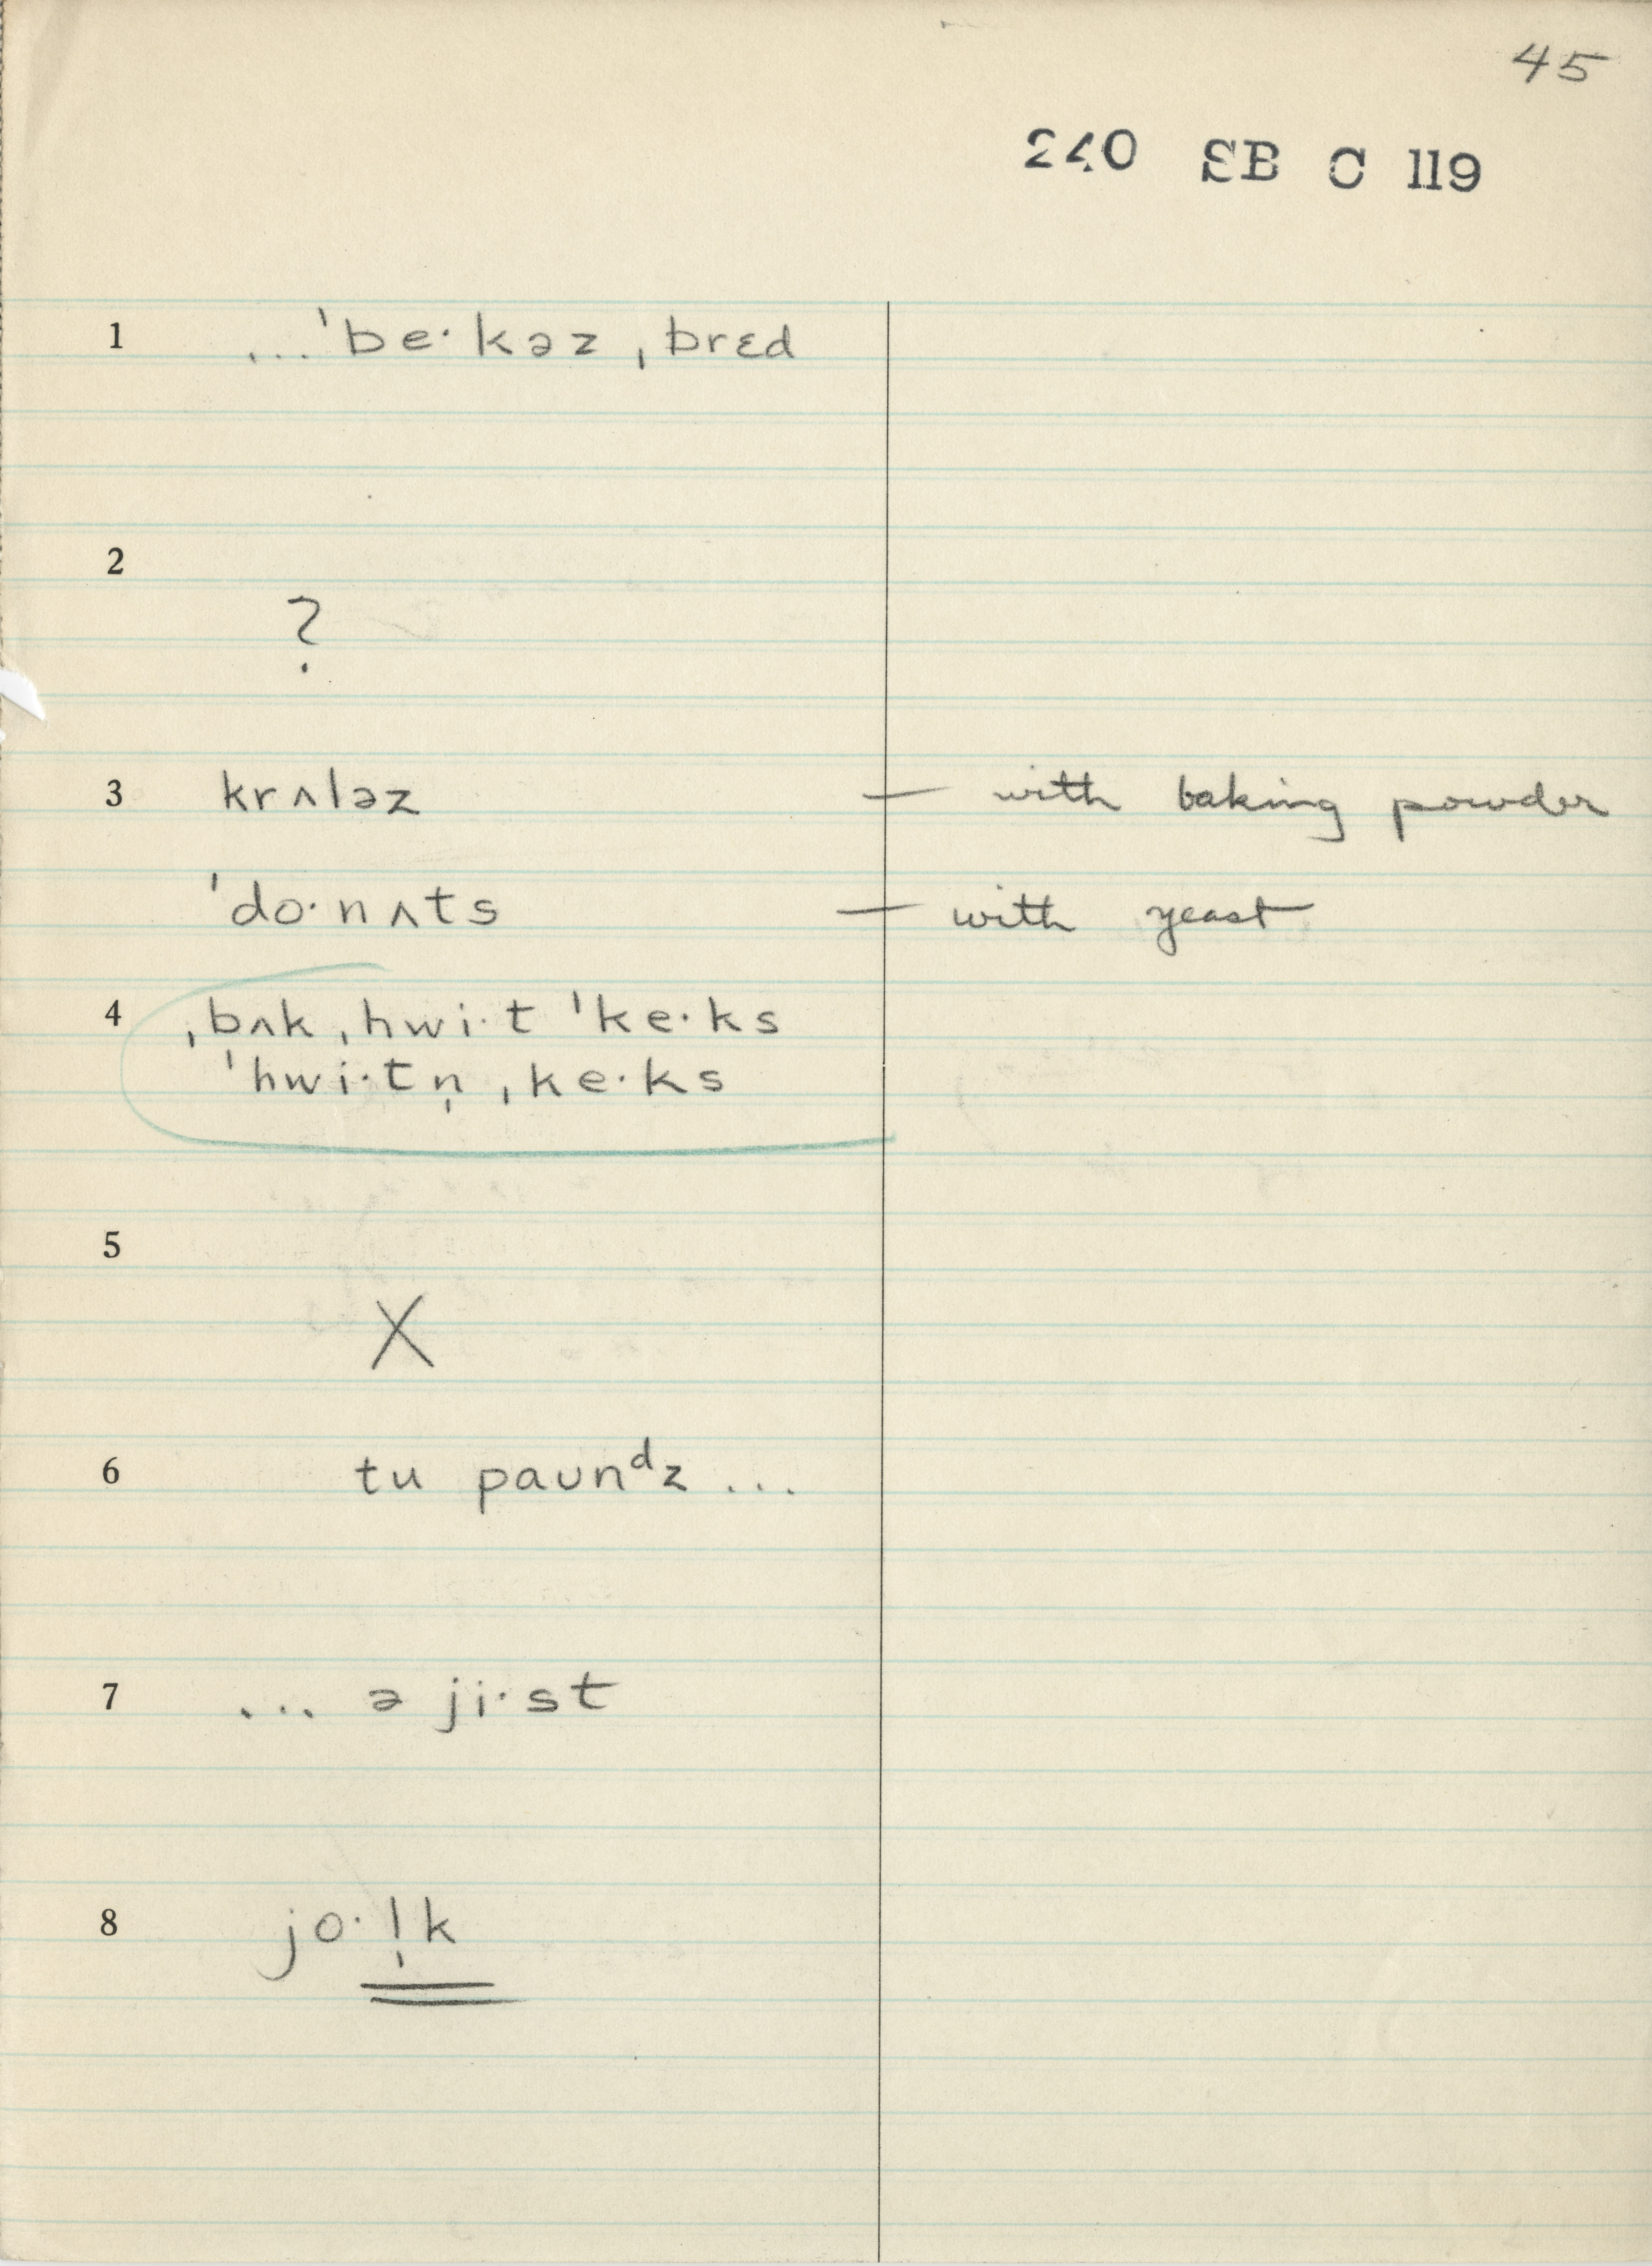 45
240 SB C 119
1 ...ˈbe·kəz ˌbrɛd
2
?
3 krʌləz — with baking powder
ˈdo·nʌts — with yeast
4 ˌbʌk ˌhwi·t ˈke·ks
ˈhwi·tn̩ ˌke·ks
5
X
6 tu paʊnᵈz ...
7 ... ə ji·st
8 jo·l̩k